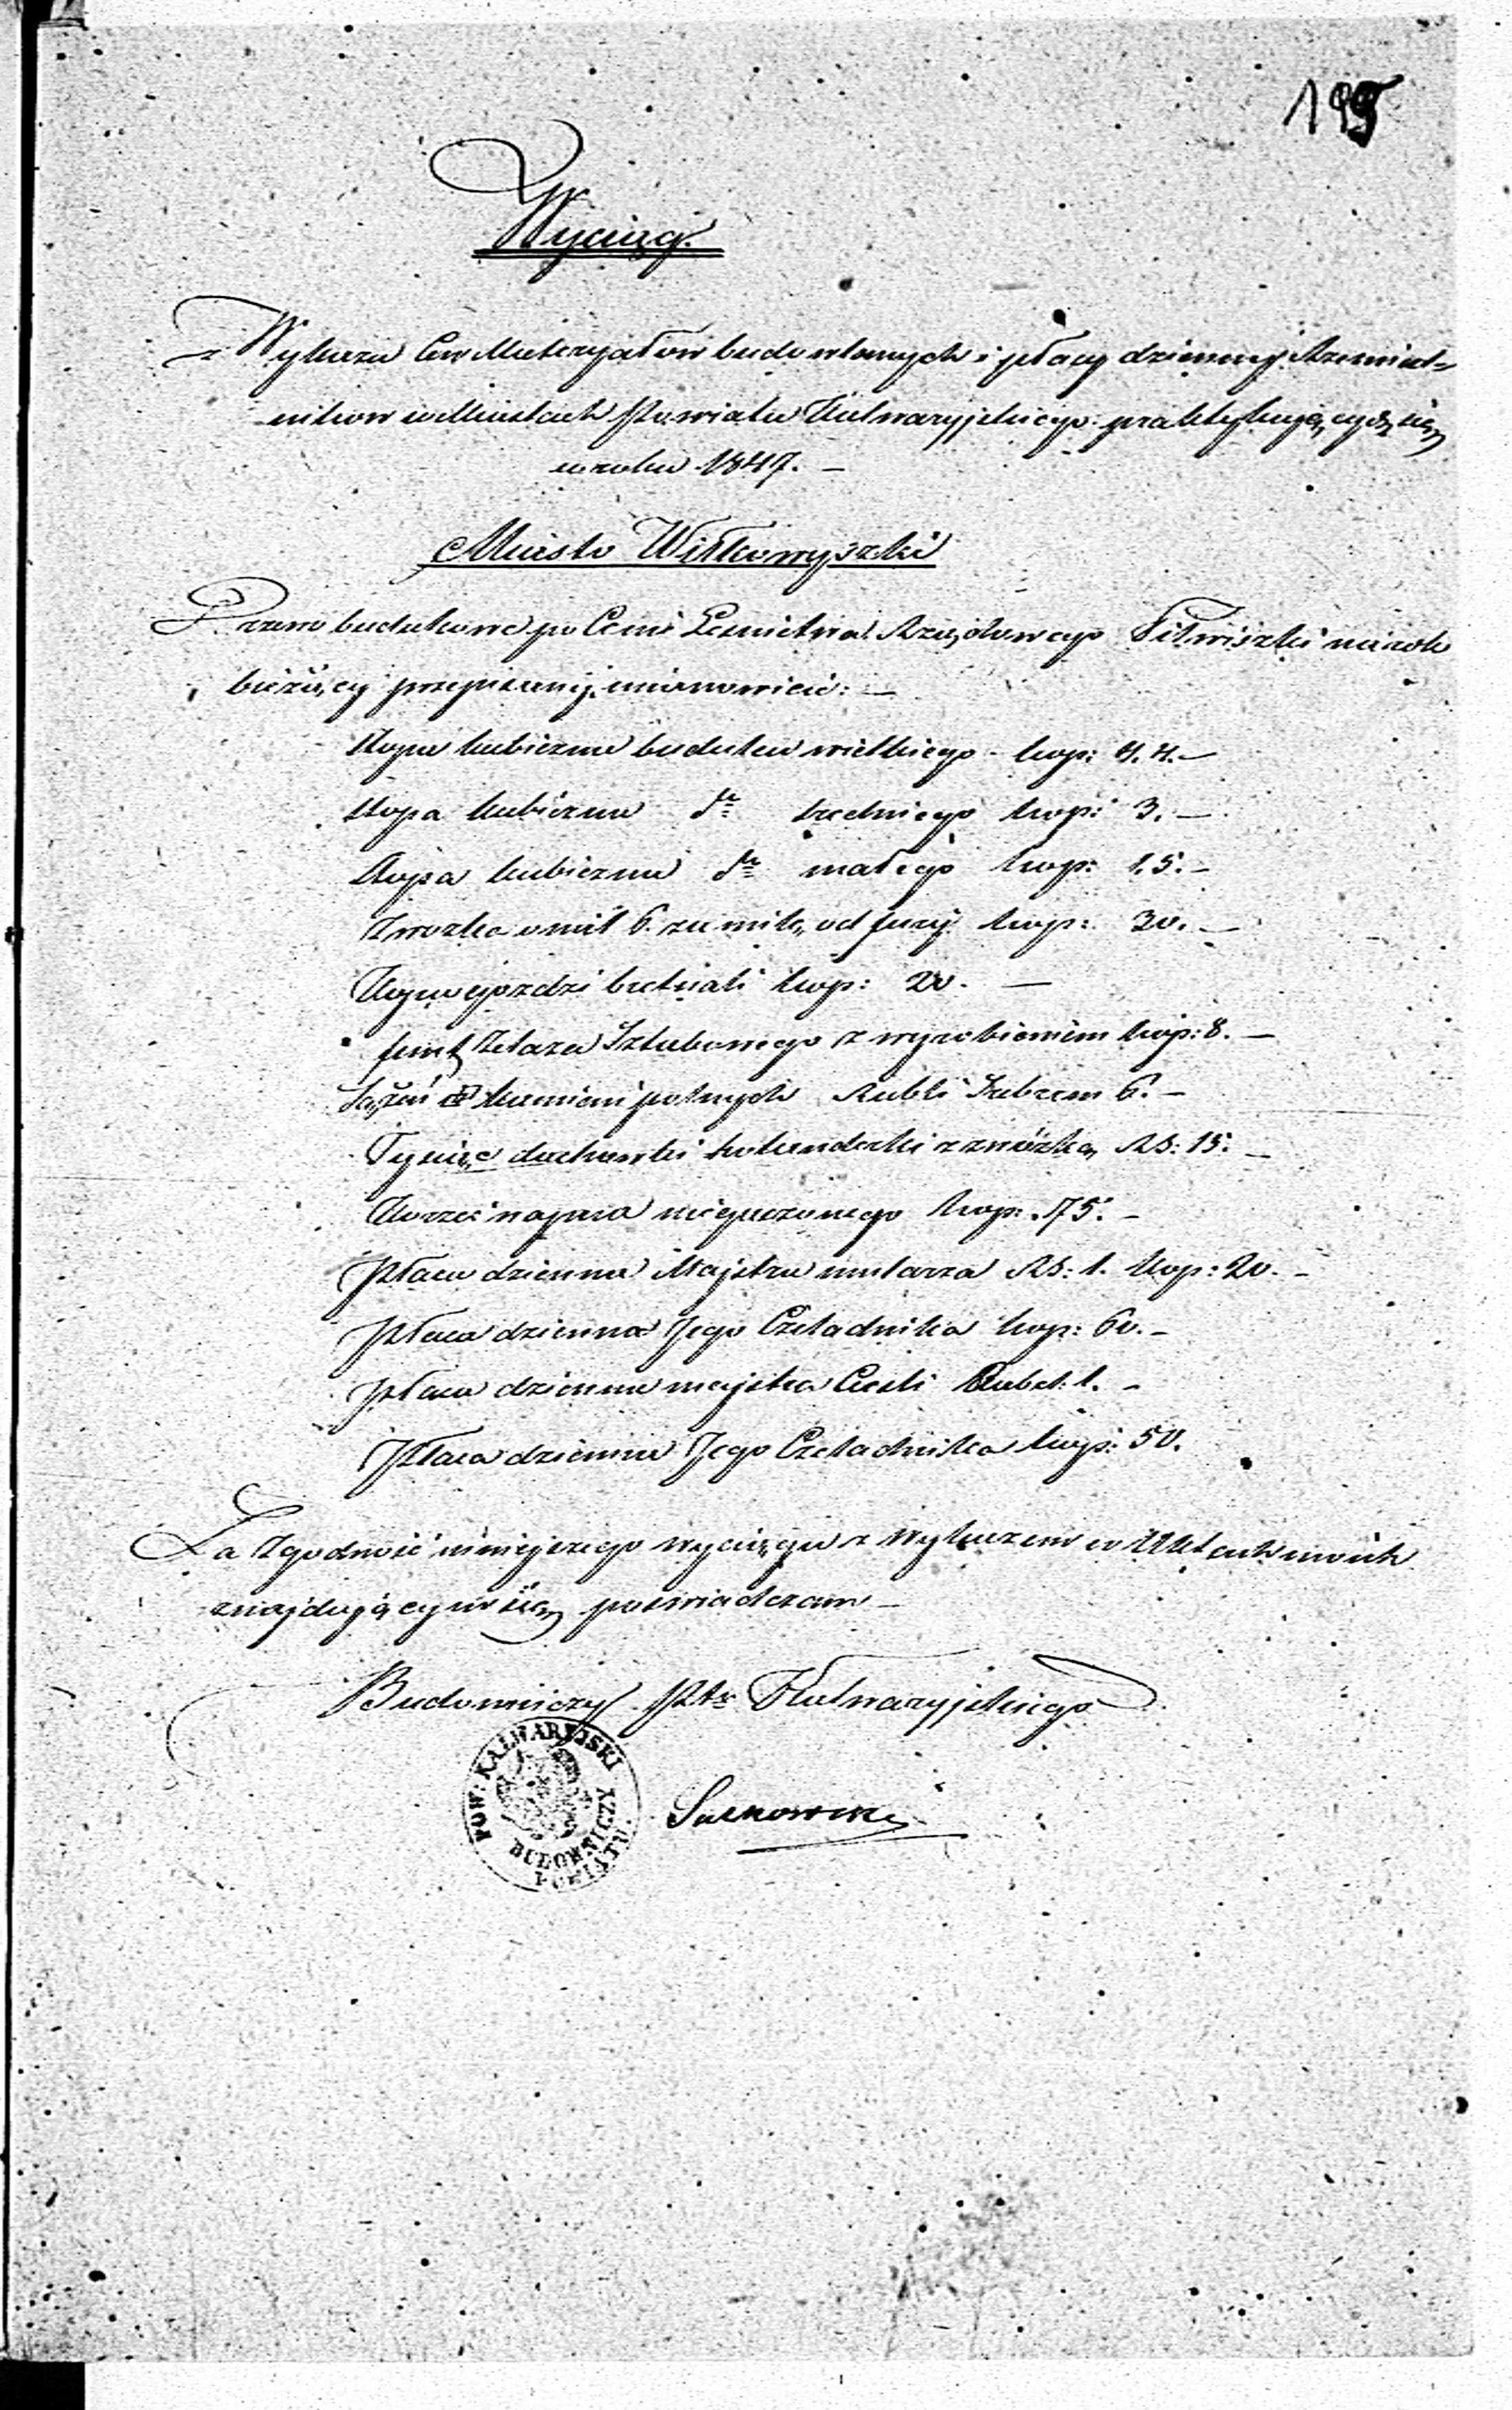 199
Wyciąg.
z Wykazu Cen Materyałow budowlanych i płacy dziennej Rzemieśl=
nikow w Miastach Powiatu Kalwaryjskiego praktykujących się
w roku 1847. —
Miasto Wiłkowyszki
Drzewo budulcowe po Cenie Leśnictwa Rządowego Pilwiszki na rok
bieżący przepisanej, mianowicie: —
Stopa kubiczna budulcu wielkiego - kop: 4. —
Stopa kubiczna dto średniego kop: 3. —
Stopa kubiczna dto małego kop: 1.5. —
Zwozka o mil 6. za milę od fury kop: 30. —
Kopa gwozdzi bretnali kop: 20. —
funt Żelaza Sztabowego z wyrobieniem kop: 8. —
Sążeń kamieni polnych Rubli Srebrem 6. —
Tysiąc dachowki holenderki z zwózką RS: 15. —
Korzec wapna niegaszonego kop: 75. —
Płaca dzienna Majstra mularza RS: 1. kop: 20. —
Płaca dzienna Jego Czeladnika kop: 60. —
Płaca dzienna majstra Cieśli Rubel: 1. —
Płaca dzienna Jego Czeladnika kop: 50.
Za Zgodność niniejszego wyciągu z wykazem w Aktach moich
znajdującym się poświadczam —
Budowniczy Ptu Kalwaryjskiego
POW: KALWARYJSKI
BUDOWNICZY
POWIATU.